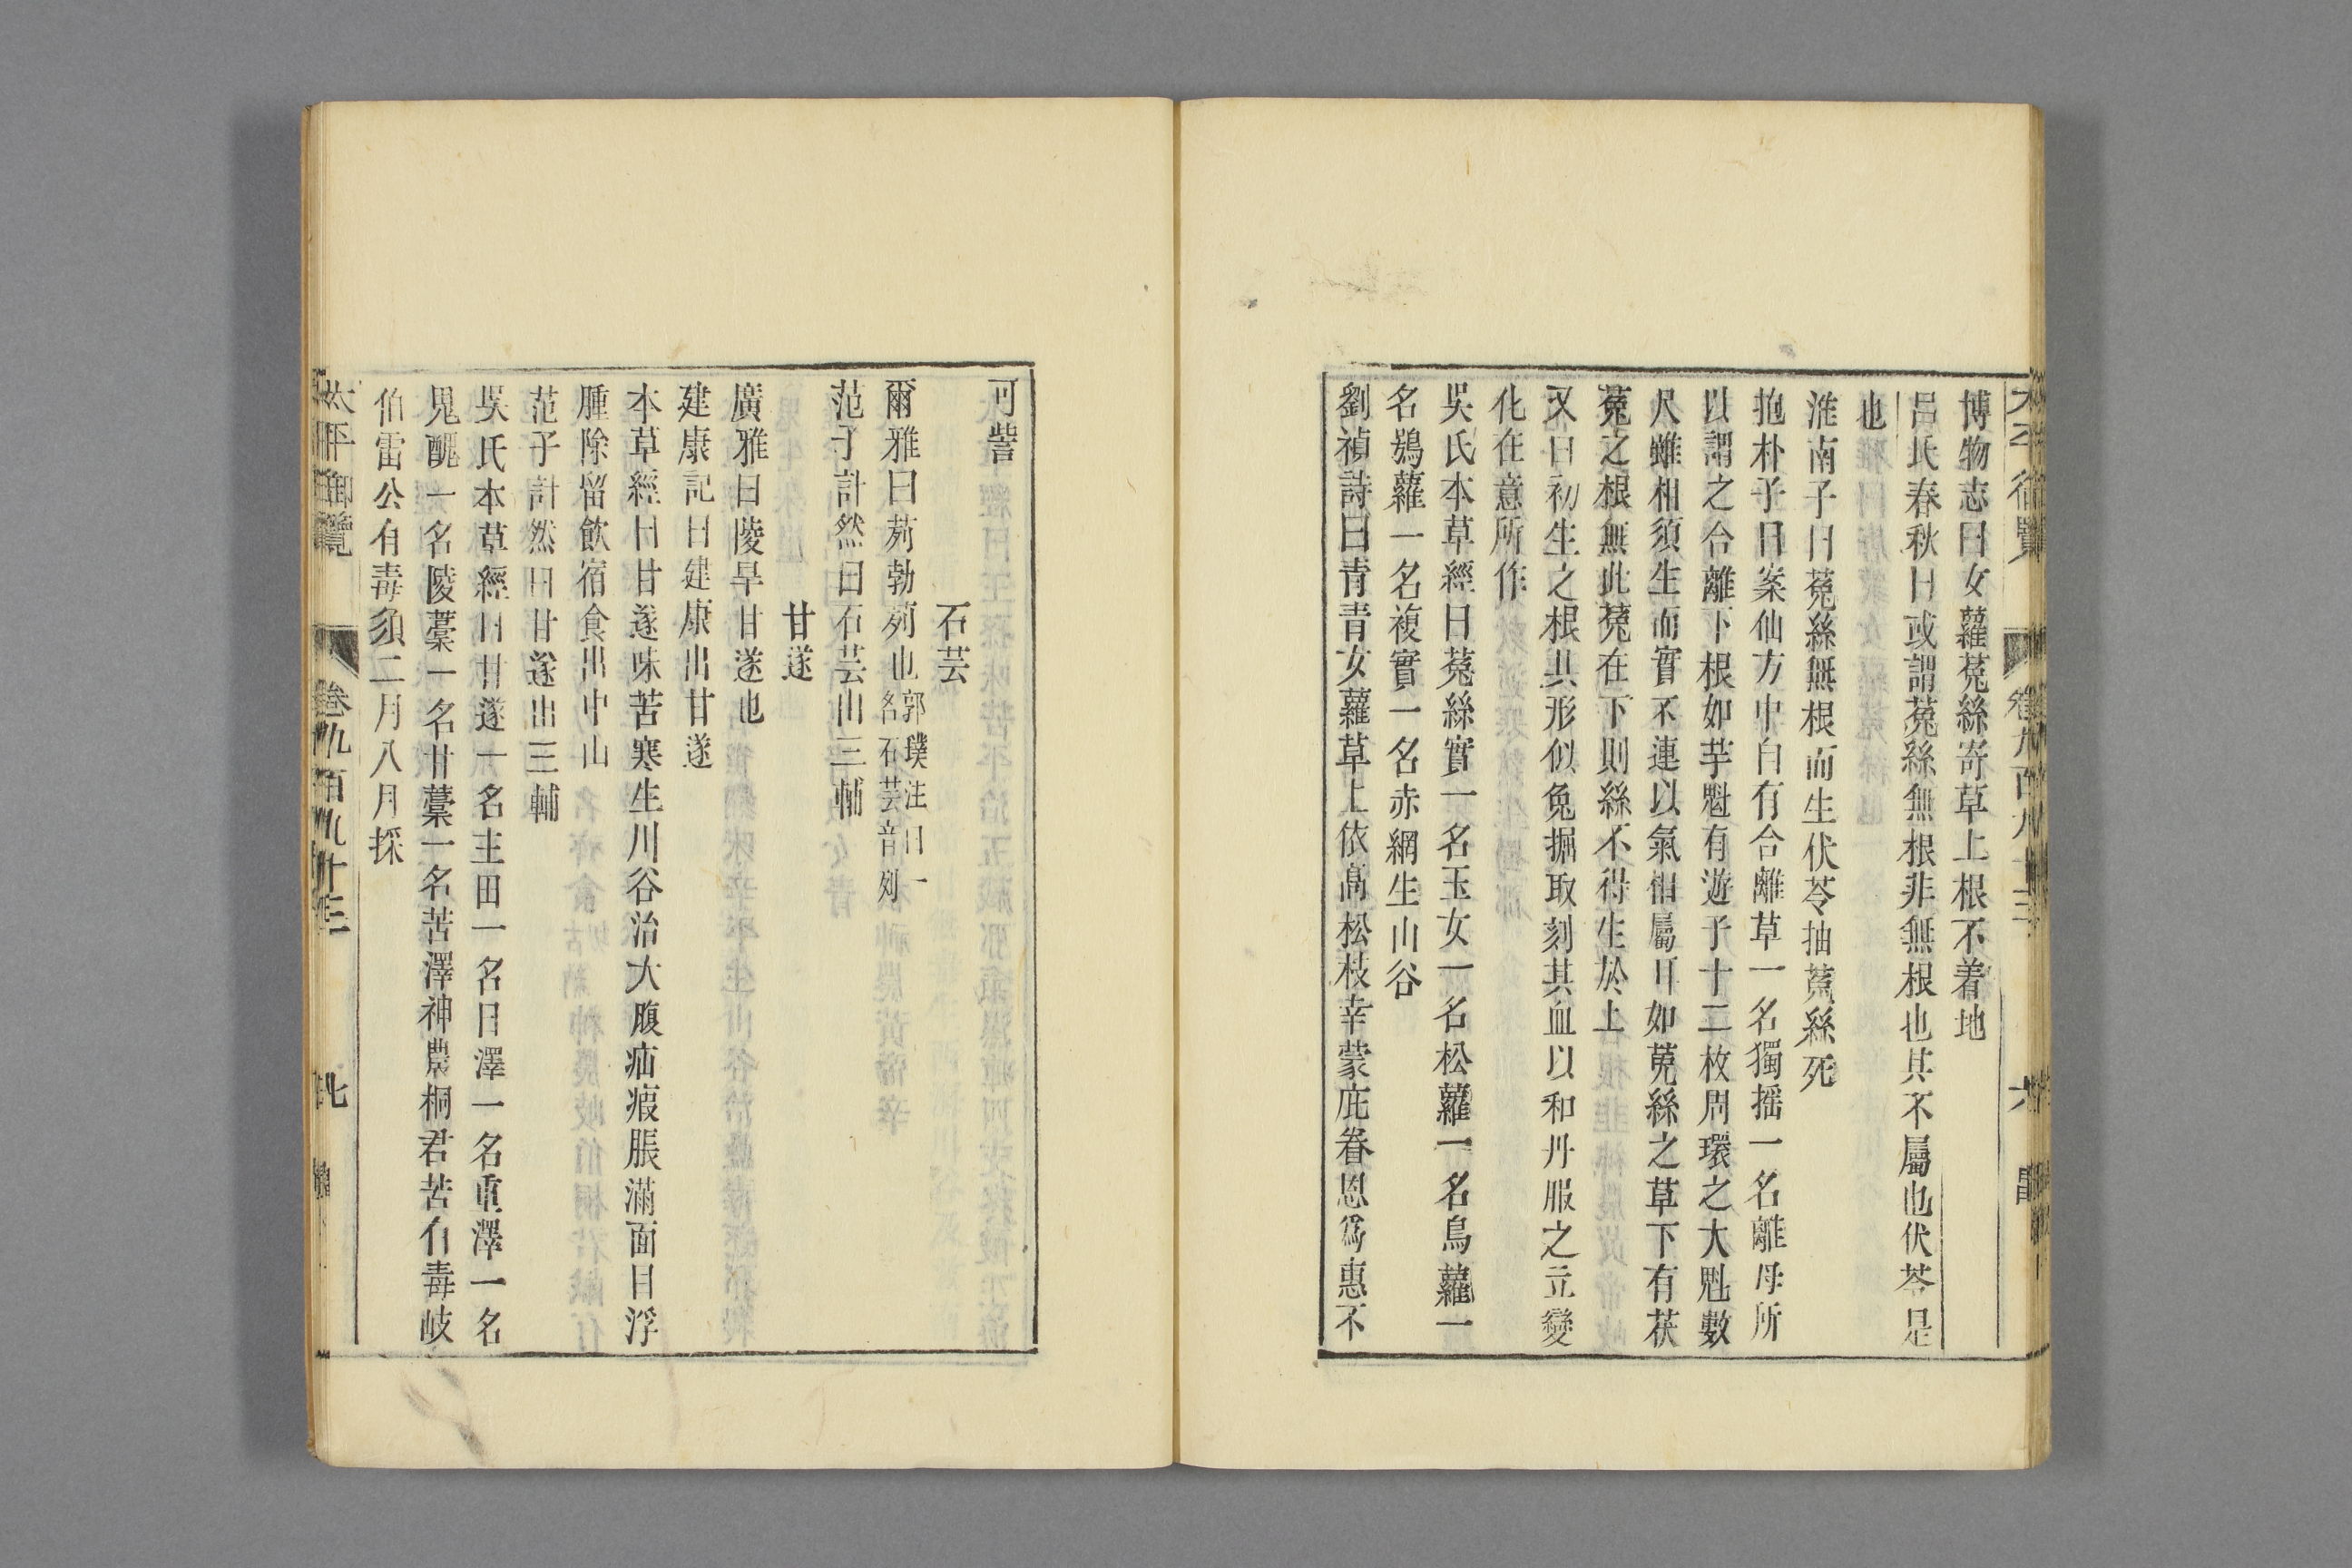 博物志曰女蘿菟絲寄草上根不着地
呂氏春秋曰或謂菟絲無根非無根也其不屬也伏苓是
也
淮南子曰菟絲無根而生伏苓抽菟絲死
抱朴子曰案仙方中自有合離草一名獨摇一名離母所
以謂之合離下根如芋魁有遊子十二枚周環之大魁數
尺雖相須生而實不連以氣相屬耳如菟絲之草下有茯
菟之根無此菟在下則絲不得生於上
又曰初生之根其形似兔掘取刻其血以和丹服之立變
化在意所作
吳氏本草經曰菟絲實一名玉女一名松蘿一名鳥蘿一
名鵶蘿一名複實一名赤網生山谷
劉禎詩曰青青女蘿草上依高松枝幸蒙庇眷恩爲惠不
可訾
石芸
爾雅曰茢勃茢也郭璞注曰一
名石芸音列
范子計然曰石芸出三輔
甘遂
廣雅曰陵旱甘遂也
建康記曰建康出甘遂
本草經曰甘遂味苦寒生川谷治大腹疝瘕脹滿面目浮
腫除留飲宿食出中山
范子計然曰甘遂出三輔
吳氏本草經曰甘遂一名主田一名曰澤一名重澤一名
鬼醜一名陵藁一名甘藁一名苦澤神農桐君苦有毒岐
伯雷公有毒須二月八月採
太平御覽
卷九百九十三